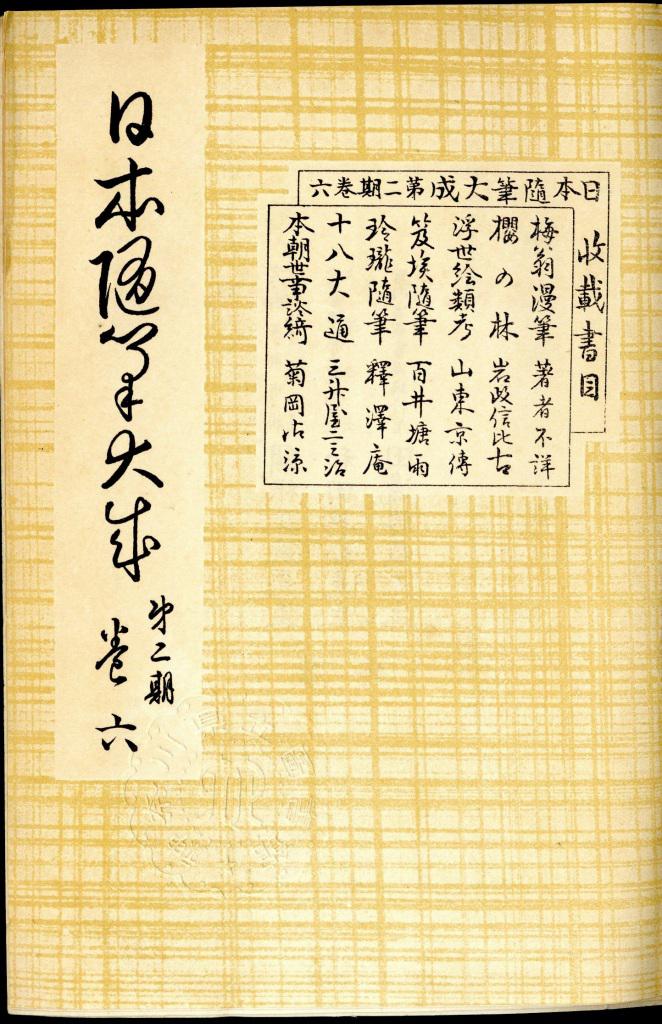 日本随筆大成
第二期
巻六
日本隨筆大成第二期卷六
收載書目
梅翁漫筆 著者不詳
櫻の林 岩政信比古
浮世絵類考 山東京傳
笈埃隨筆 百井塘雨
玲瓏隨筆 釋澤庵
十八大通 三升屋二三治
本朝世事談綺 菊岡沾涼